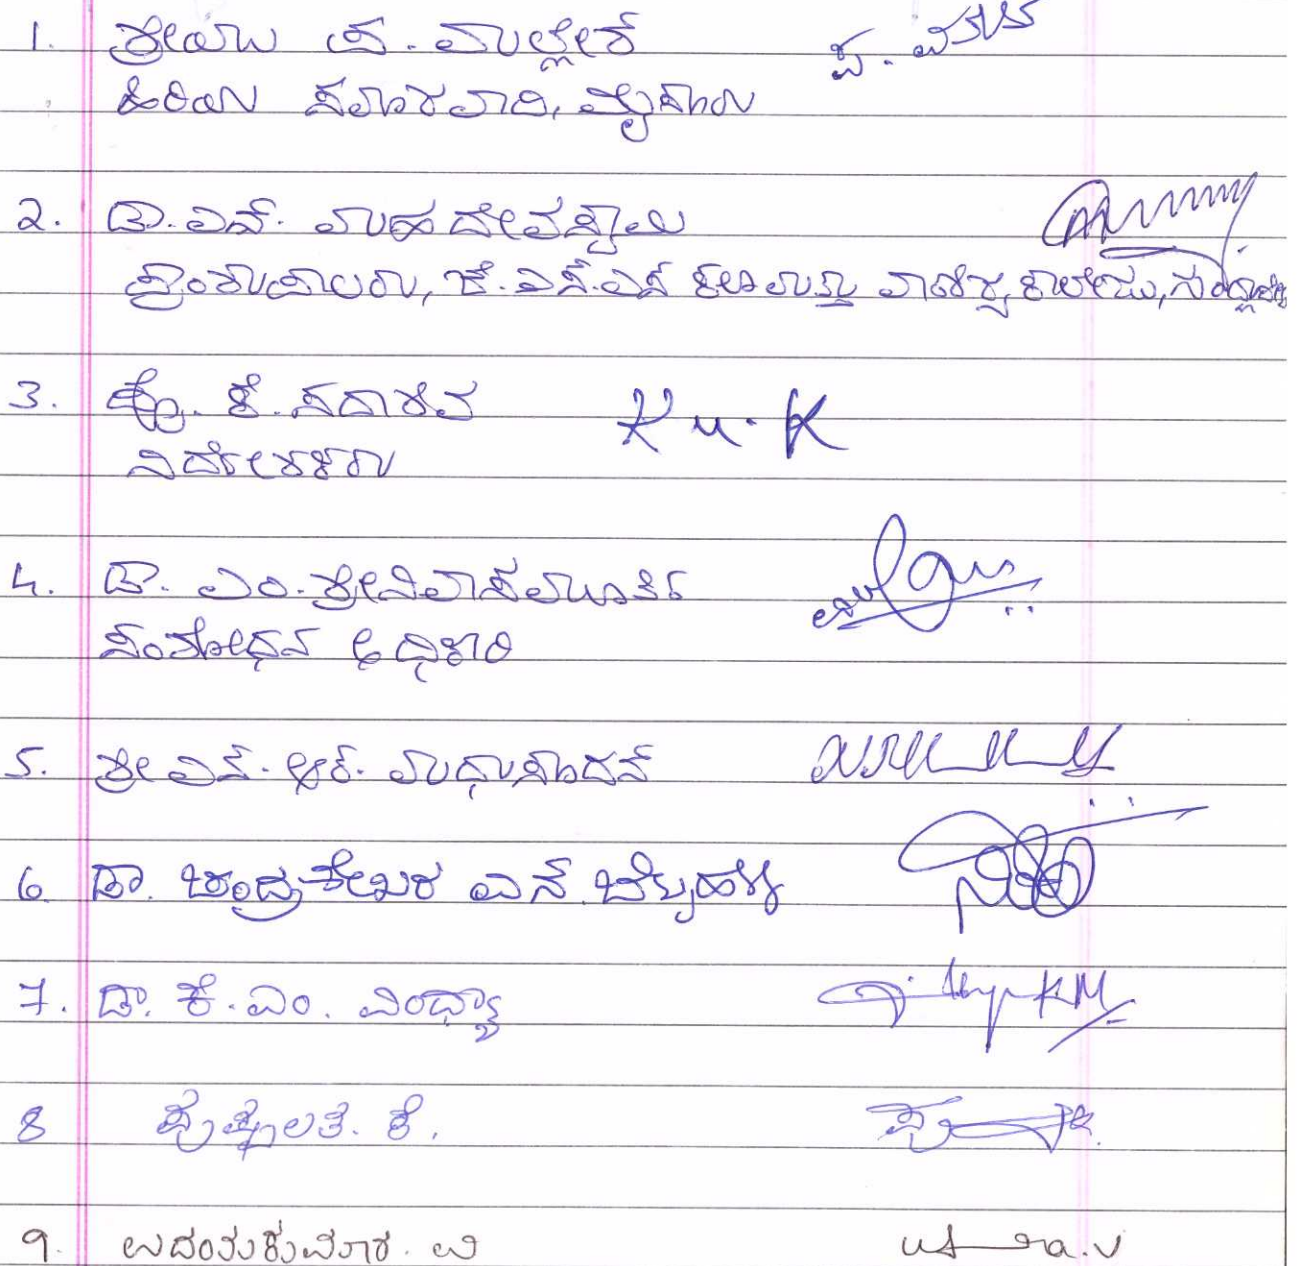 1. ಶ್ರೀಯುತ ಪ. ಮಲ್ಲೇಶ್
ಹಿರಿಯ ಸಮಾಜವಾದಿ, ಮೈಸೂರು
2. ಡಾ. ಎನ್. ಮಹದೇವಸ್ವಾಮಿ
ಪ್ರಾಂಶುಪಾಲರು, ಜೆ.ಎಸ್.ಎಸ್ ಕಲಾ ಮತ್ತು ವಾಣಿಜ್ಯ ಕಾಲೇಜು,
3. ಪ್ರೊ. ಕೆ. ಸದಾಶಿವ
ನಿರ್ದೇಶಕರು
4. ಡಾ. ಎಂ. ಶ್ರೀನಿವಾಸಮೂರ್ತಿ
ಸಂಶೋಧನ ಅಧಿಕಾರಿ
5. ಶ್ರೀ ಎನ್. ಆರ್. ಮಧುಸೂದನ್
6. ಡಾ. ಚಂದ್ರಶೇಖರ ಎನ್.
7. ಡಾ. ಕೆ. ಎಂ. ವಿಂಧ್ಯಾ KM
8 ಪುಷ್ಪಲತೆ. ಕೆ.
9. ಉದಯಕುಮಾರ. ವಿ